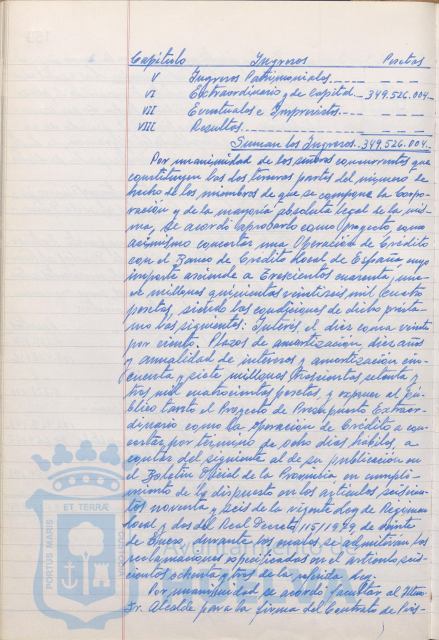 Capítulo Ingresos Pesetas
V Ingresos Patrimoniales
VI Extraordinario y de Capital 349.526.004.-
VII Eventuales e Imprevistos
VIII Resultas
Suman los Ingresos 349.526.004.-
Por unanimidad de los señores concurrentes que
constituyen las dos terceras partes del número de
hecho de los miembros de que se compone la Corpo-
ración y de la mayoría absoluta legal de la mis-
ma, se acordó aprobarlo como proyecto, como
asimismo concertar una Operación de Crédito
con el Banco de Crédito Local de España, cuyo
importe asciende a Trescientos cuarenta y nue-
ve millones quinientos veintiseis mil cuatro
pesetas, siendo las condiciones de dicho présta-
mo las siguientes: Interés, el diez coma veinte
por ciento. Plazos de amortización diez años
y anualidad de intereses y amortización cin-
cuenta y siete millones trescientos setenta y
tres mil cuatrocientas pesetas, y exponer al pú-
blico tanto el Proyecto de Presupuesto Extraor-
dinario como la Operación de Crédito a con-
certar, por término de ocho días hábiles, a
contar del siguiente al de su publicación en
el Boletín Oficial de la Provincia en cumpli-
miento de lo dispuesto en los artículos seiscien-
tos noventa y seis de la vigente Ley de Régimen
Local y dos del Real Decreto 115/1979 de veinte
de Enero, durante los cuales se admitirán las
reclamaciones especificadas en el artículo seis-
cientos ochenta y tres de la referida Ley.
Por unanimidad se acordó facultar al Iltmo.
Sr. Alcalde para la firma del Contrato de Prés-
PORTUS MARIS ET TERRÆ
Ayuntamiento de